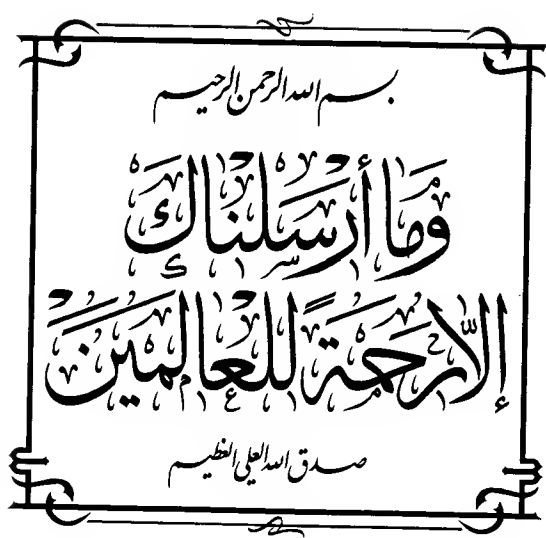 بسم الله الرحمن الرحيم
وَمَا أَرْسَلْنَاكَ
إِلَّا رَحْمَةً لِلْعَالَمِينَ
صدق الله العلي العظيم